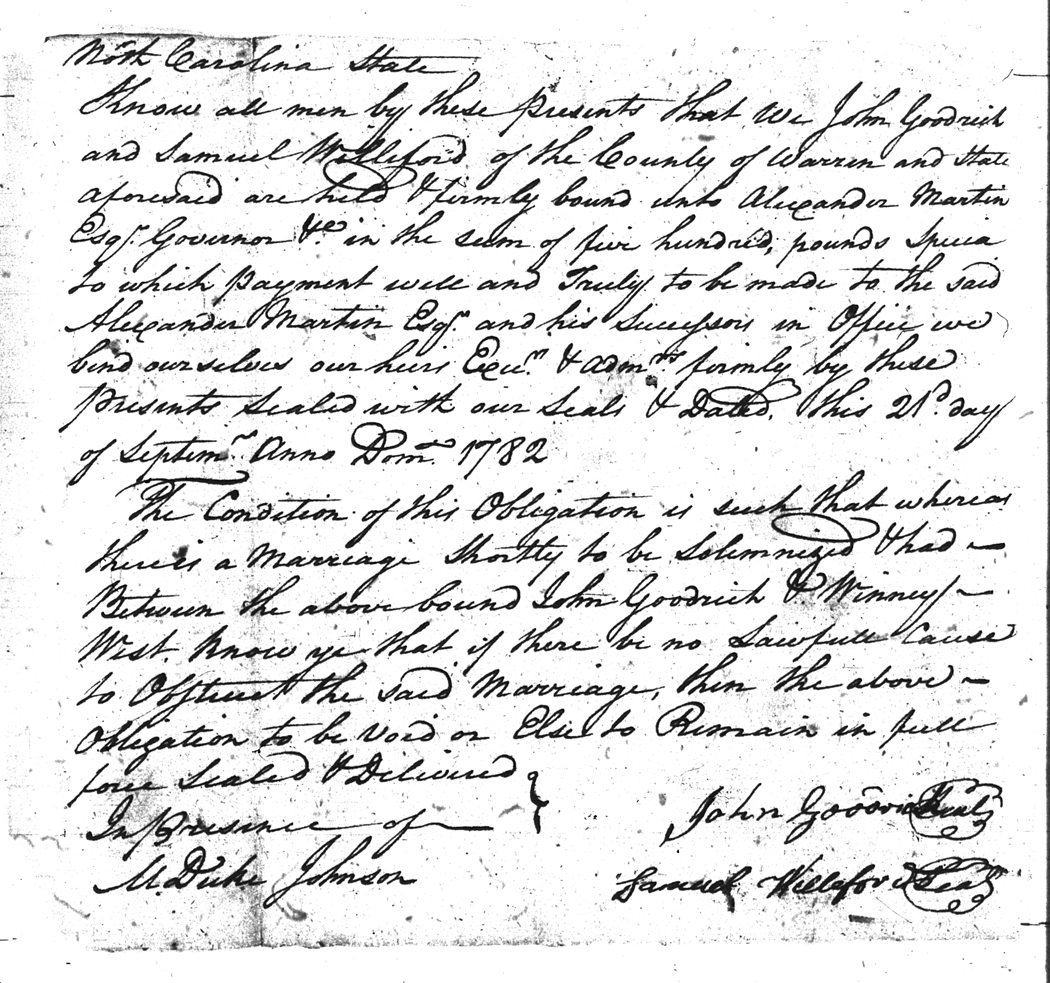 North Carolina State
Know all men by these Presents that We John Goodrich
and Samuel Willeford of the County of Warren and State
aforesaid are held & firmly bound unto Alexander Martin
Esqr. Governor &c in the sum of five hundred, pounds Specia
to which Payment well and Truly to be made to the said
Alexander Martin Esqr. and his Successors in Office we
bind ourselves our heirs Exec.rs & Admrs firmly by these
Presents Sealed with our Seals & Dated, this 21d. day
of Septemr. Anno Dom. 1782
The Condition of this Obligation is such that whereas
there is a Marriage Shortly to be Solemnized & had
Between the above bound John Goodrich & Winney
West. Know ye that if there be no Lawfull Cause
to Obstruct the said Marriage, then the above
Obligation to be Void or Else to Remain in full
force Sealed & Delivered
In Presence of
M. Duke Johnson
John Goodrich Seal
Samuel Willeford Seal